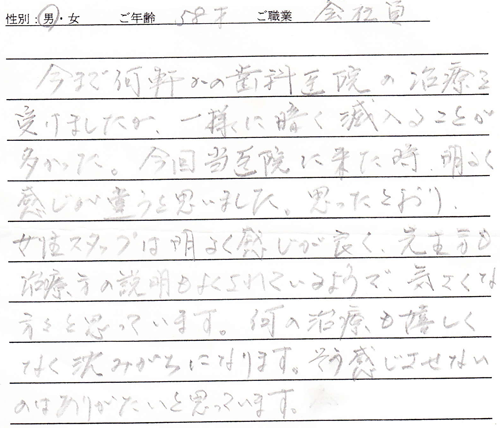 性別：男・女 ご年齢 58才 ご職業 会社員
今まで何軒かの歯科医院の治療を
受けましたが、一様に暗く滅入ることが
多かった。今回当医院に来た時、明るく
感じが違うと思いました。思ったとおり、
女性スタッフは明るく感じが良く、先生方も
治療方の説明もよくされているようで、気さくな
方々と思っています。何の治療も嬉しく
なく沈みがちになります。そう感じさせない
のはありがたいと思っています。